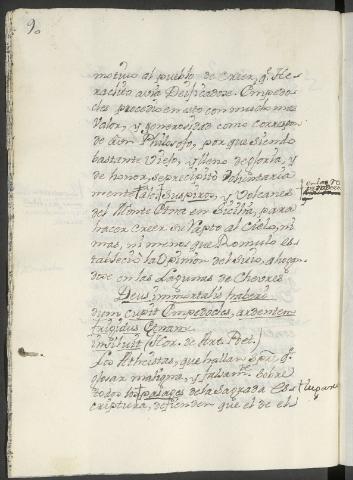 90
motivo al pueblo de creer, q.e He-
raclido avia Deificadose. Empedo-
cles procedió en esto con mucho mas
Valor, y generosidad como correspon-
de à un Philosofo, por que siendo
bastante Viejo, y lleno de gloria, y
de honor, se precipitò Voluntaria
mente
Suspiros, y Volcanes
del Monte Etna en Sicilia, para
hacer creer su Rapto al Cielo, ni
mas, ni menos que Romulo es-
tableciò la Opinion del suio, ahogan
dose en las Lagunas de Chevres
Deus immortalis haberi
dum cupit Empedocles, ardentem
frigidus Etnam
insiluit (Hor. de Art. Poet.)
Los Atheistas, que hallan
glosar maligna, y falsam.te sobre
todos los pasages de la Sagrada Es-
criptura, defienden que el de el